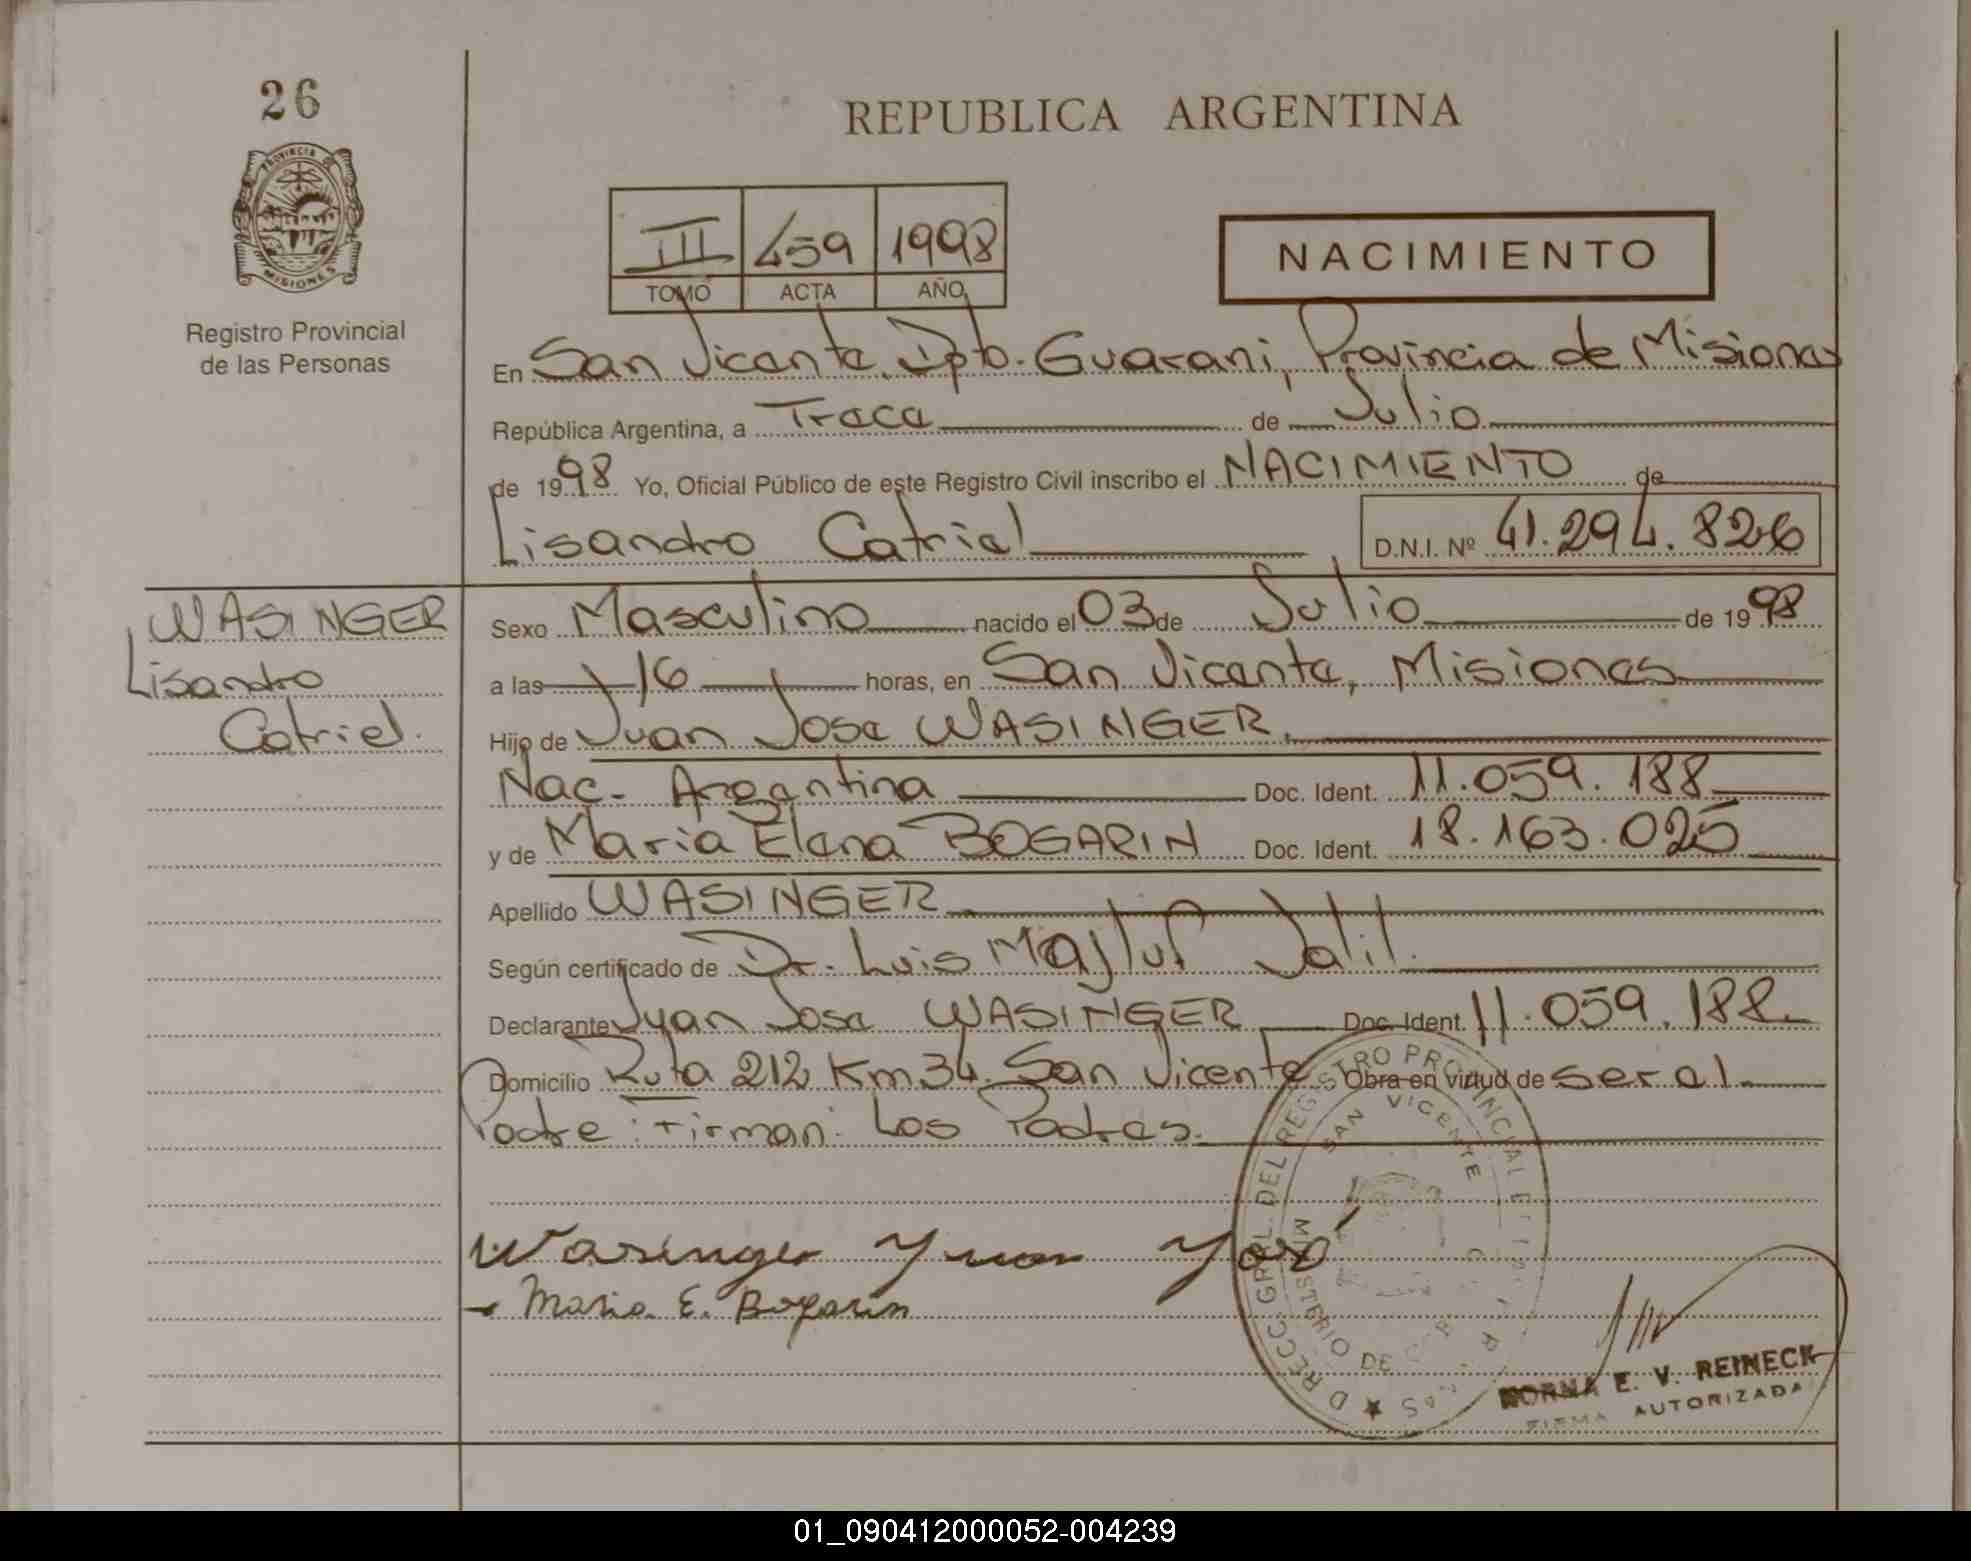 26
PROVINCIA DE
MISIONES
Registro Provincial
de las Personas
REPUBLICA ARGENTINA
III 459 1998
TOMO ACTA AÑO
NACIMIENTO
En San Vicente, Dpto. Guarani, Provincia de Misiones
República Argentina, a Trece de Julio
de 1998 Yo, Oficial Público de este Registro Civil inscribo el NACIMIENTO de
Lisandro Catriel D.N.I. Nº 41.294.826
WASINGER
Lisandro
Catriel.
Sexo Masculino nacido el 03 de Julio de 1998
a las 16 horas, en San Vicente, Misiones
Hijo de Juan Jose WASINGER.
Nac- Argentina Doc. Ident. 11.059.188
y de Maria Elena BOGARIN Doc. Ident. 18.163.025
Apellido WASINGER
Según certificado de Dr. Luis Majluf Jalil.
Declarante Juan Jose WASINGER Doc. Ident. 11.059.188
Domicilio Ruta 212 Km 34 San Vicente Obra en virtud de ser el
Padre: Firman: Los Padres.
Wasinger Juan Jose
Maria E. Bogarin
DIRECC. GRAL. DEL REGISTRO PROVINCIAL
SAN VICENTE
MINISTERIO DE
NORMA E. V. REINECK
FIRMA AUTORIZADA
01_090412000052-004239